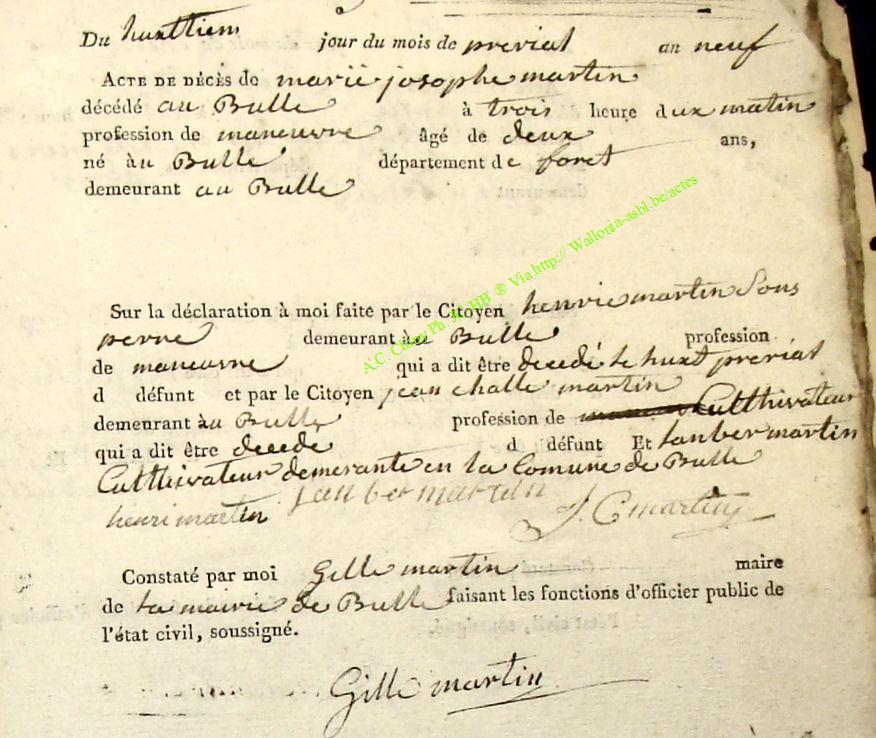 Du huxttiem jour du mois de prerial an neuf
ACTE DE DÉCÈS de marie josophe martin
décédé au Bulle à trois heure dux matin
profession de maneuvre âgé de deux ans,
né à u Bulle département de foret
demeurant au Bulle
Sur la déclaration à moi faite par le Citoyen henrie martin Sons
perre demeurant à u Bulle profession
de maneuvre qui a dit être decedé le huxt prerial
d défunt et par le Citoyen jean challe martin
demeurant à u Bulle profession de Cultthivateur
qui a dit être decedé d défunt Et lanber martin
Cultthivateur demerante en la Comune de Bulle
henri martin lanber martin J. C martin
Constaté par moi Gille martin maire
de la mairie de Bulle faisant les fonctions d'officier public de
l'état civil, soussigné.
Gille martin
A.C. Ph. HB ® Via http:// Wallonia-asbl.be/actes